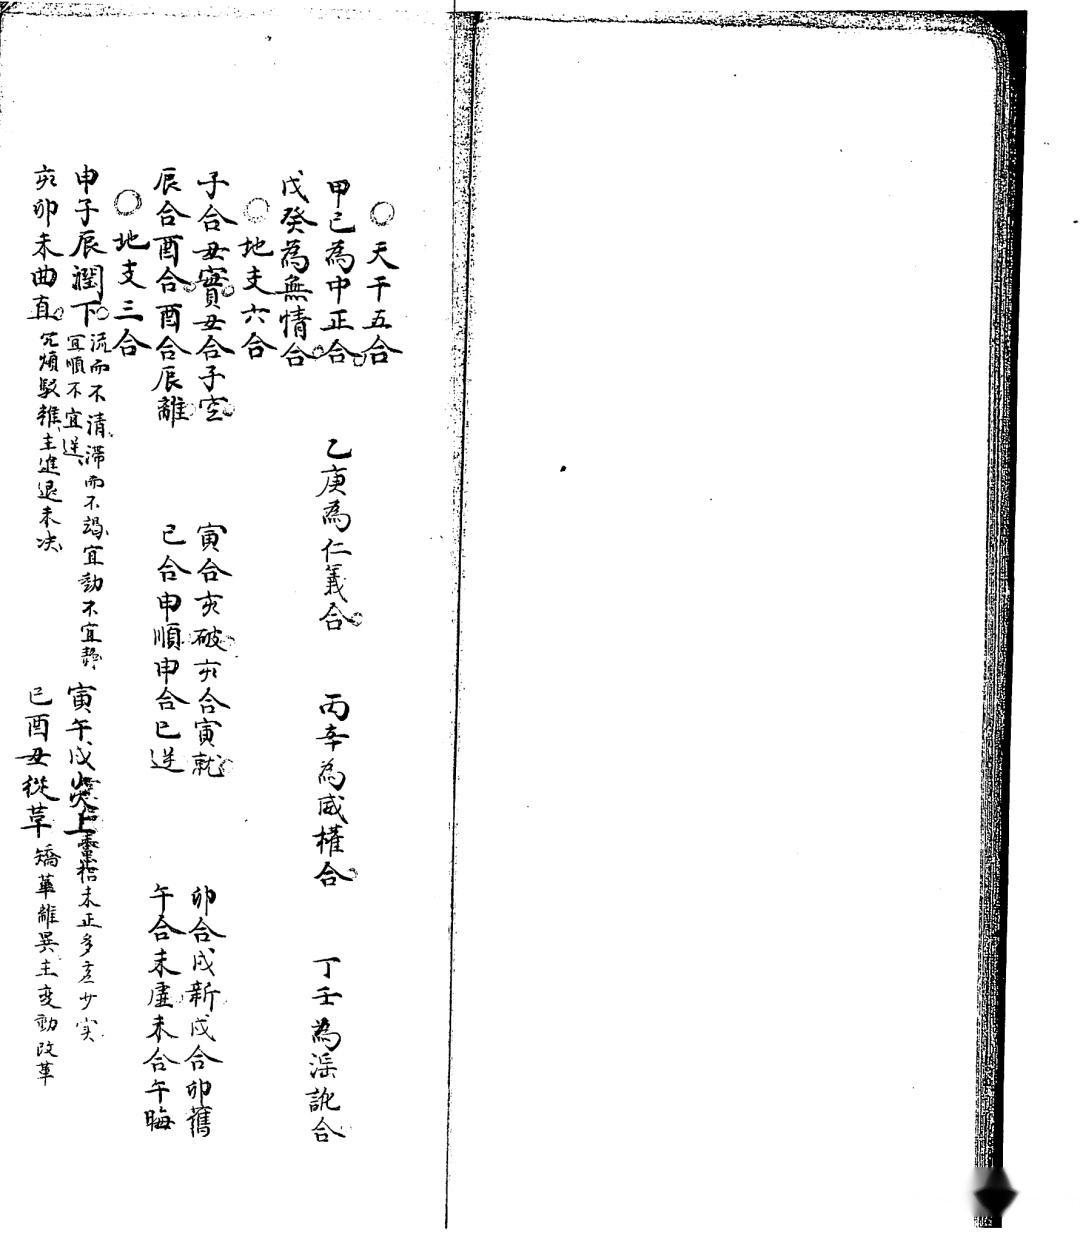 ○天干五合
甲己為中正合 乙庚為仁義合 丙辛為威權合 丁壬為滛訛合
戊癸為無情合
○地支六合
子合丑實丑合子空 寅合亥破亥合寅就 卯合戌新戌合卯舊
辰合酉合酉合辰離 巳合申順申合巳逆 午合未虛未合午晦
○地支三合
申子辰潤下 流而不清滯而不竭宜動不宜靜 宜順不宜逆 寅午戌炎上 未正多虛少实
亥卯未曲直 冗煩駁雜主進退未决 巳酉丑從革 矯革離異主变動改革